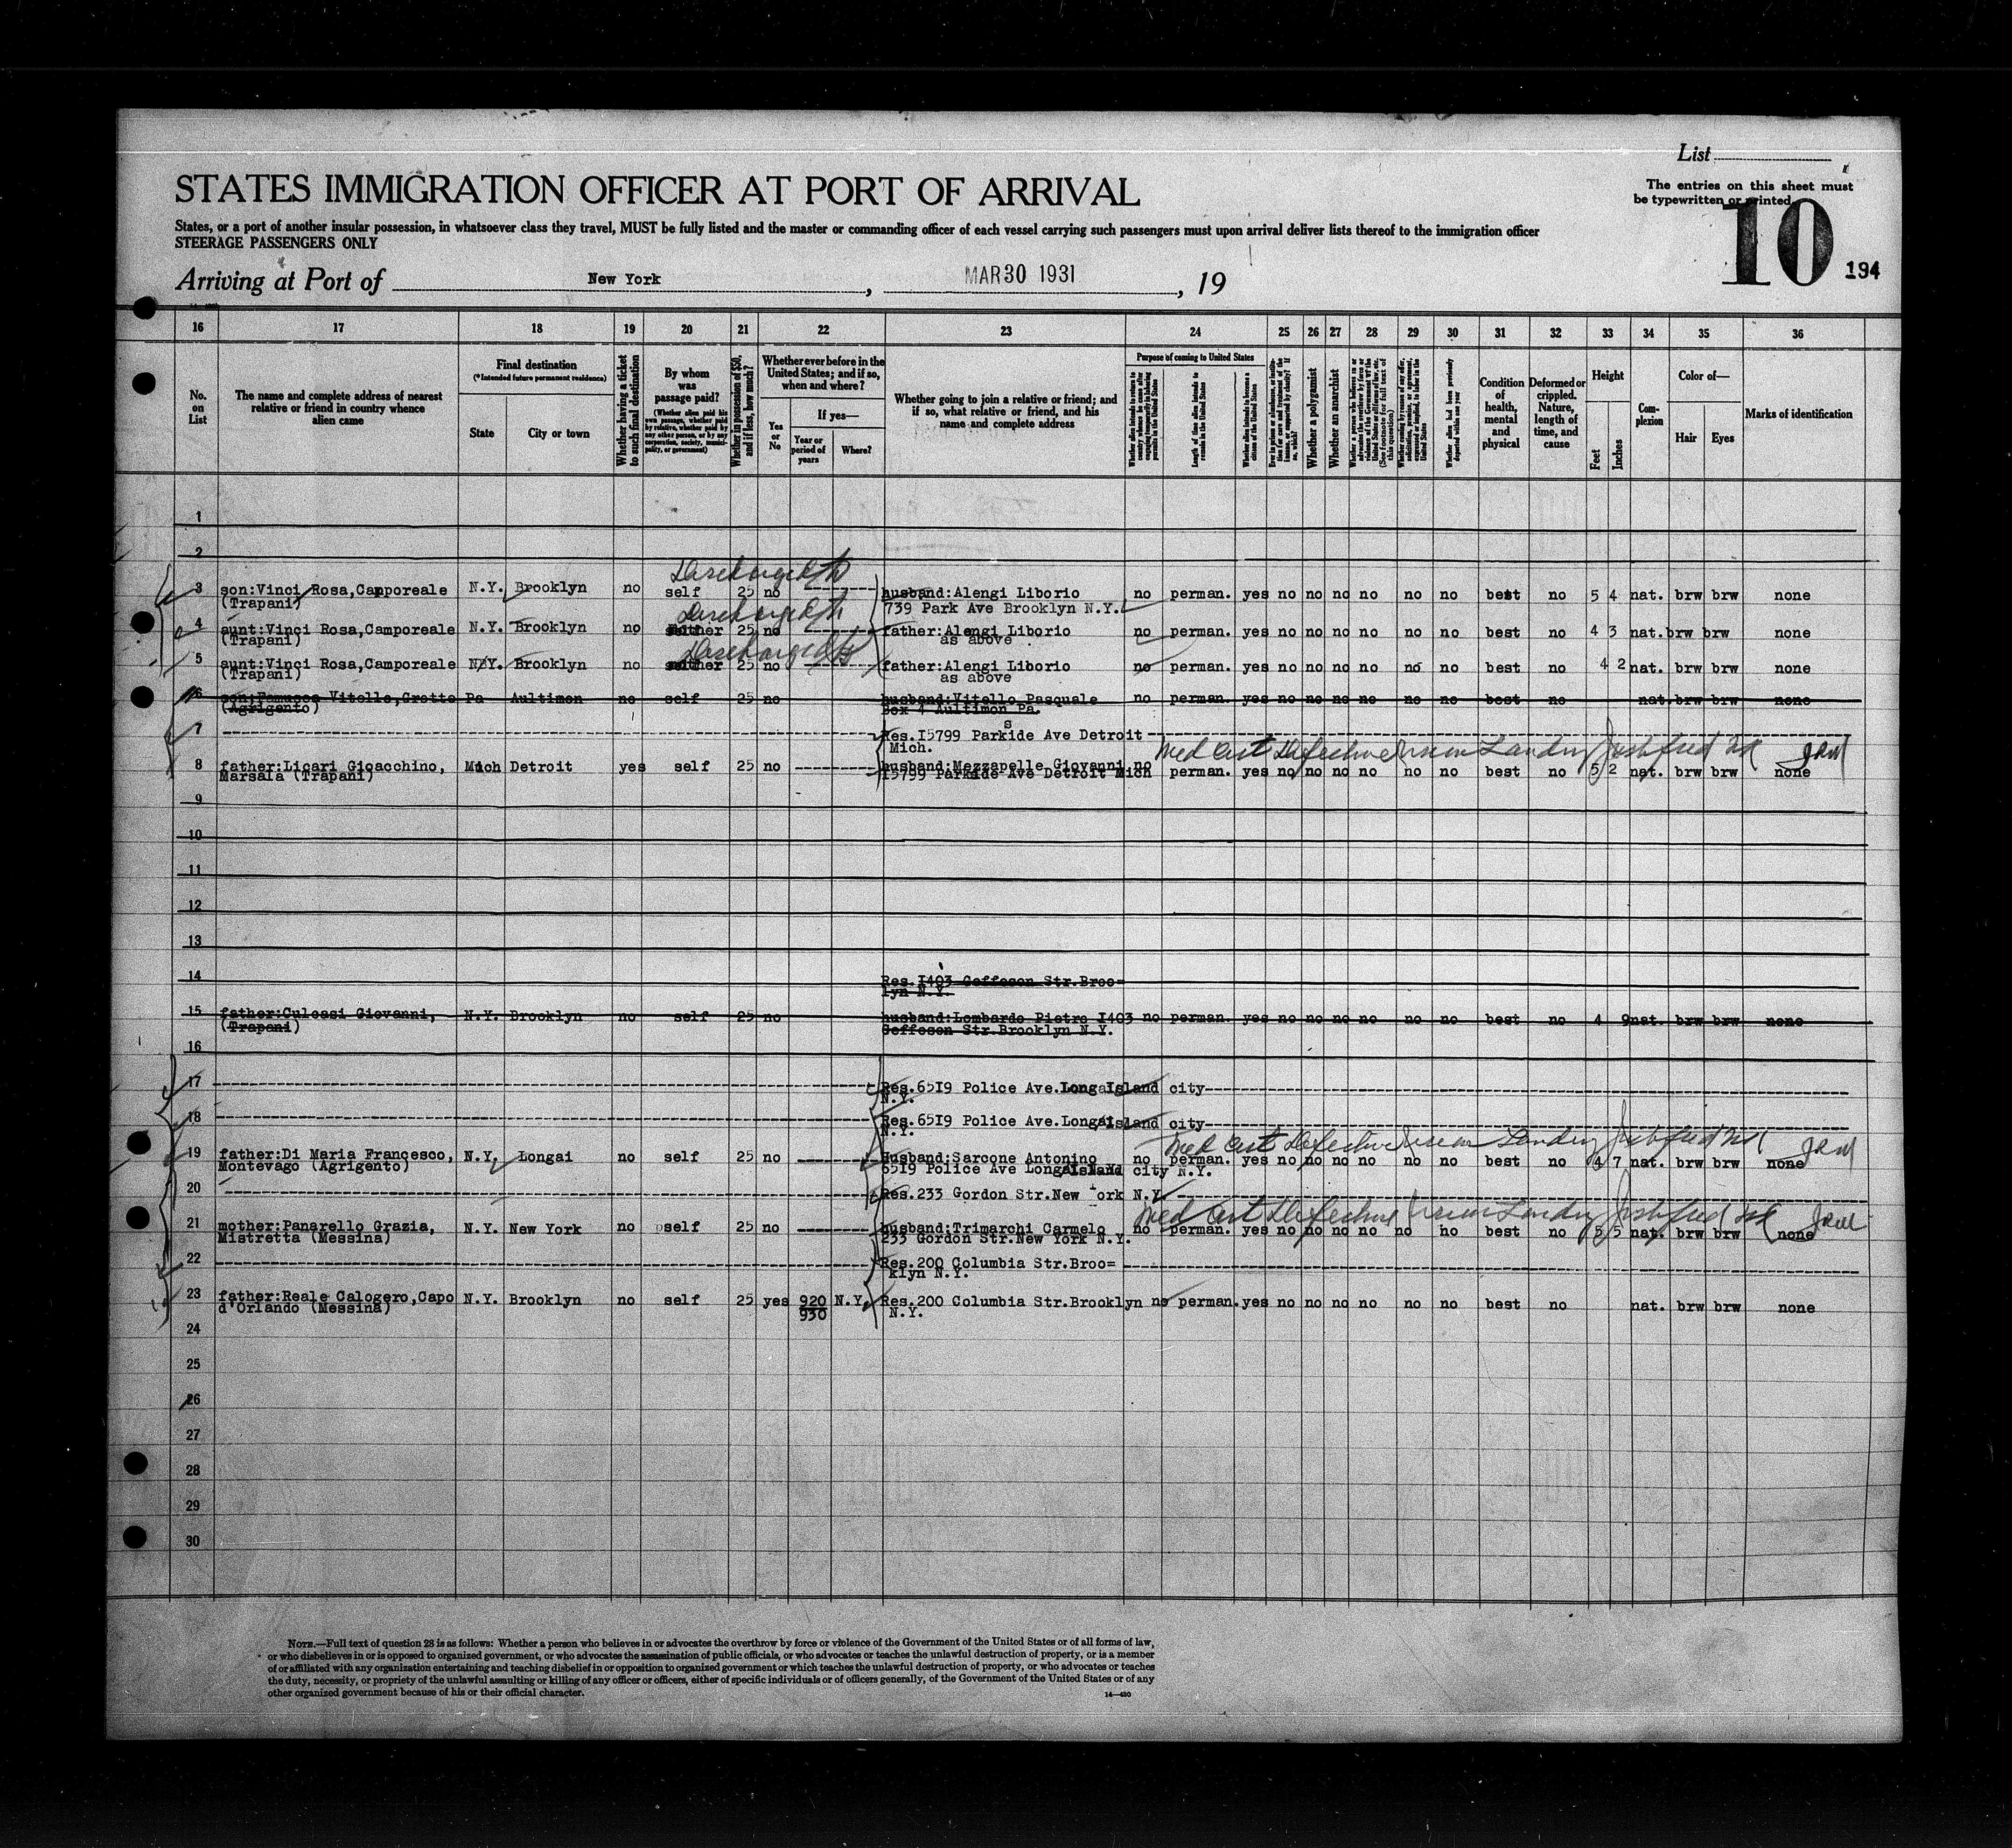 List
STATES IMMIGRATION OFFICER AT PORT OF ARRIVAL
The entries on this sheet must
be typewritten or printed.
10
194
States, or a port of another insular possession, in whatsoever class they travel, MUST be fully listed and the master or commanding officer of each vessel carrying such passengers must upon arrival deliver lists thereof to the immigration officer
STEERAGE PASSENGERS ONLY
Arriving at Port of New York, MAR 30 1931, 19
16 17 18 19 20 21 22 23 24 25 26 27 28 29 30 31 32 33 34 35 36
No. on List
The name and complete address of nearest relative or friend in country whence alien came
Final destination
(*Intended future permanent residence)
State
City or town
Whether having a ticket to such final destination
By whom was passage paid?
(Whether alien paid his own passage, whether paid by relative, whether paid by any other person, or by any corporation, society, municipality, or government)
Whether in possession of $50, and if less, how much?
Whether ever before in the United States; and if so, when and where?
Yes or No
If yes—
Year or period of years
Where?
Whether going to join a relative or friend; and if so, what relative or friend, and his name and complete address
Purpose of coming to United States
Length of time alien intends to remain in the United States
Whether alien intends to become a citizen of the United States
Whether a polygamist
Whether an anarchist
Condition of health, mental and physical
Deformed or crippled. Nature, length of time, and cause
Height
Feet
Inches
Complexion
Color of—
Hair
Eyes
Marks of identification
1
2
Discharged
3 son:Vinci Rosa,Camporeale N.Y. Brooklyn no self 25 no husband:Alengi Liborio no perman. yes no no no no no no best no 5 4 nat. brw brw none
(Trapani) 739 Park Ave Brooklyn N.Y.
Discharged
4 aunt:Vinci Rosa,Camporeale N.Y. Brooklyn no mother 25 no father:Alengi Liborio no perman. yes no no no no no no best no 4 3 nat. brw brw none
(Trapani) as above
Discharged
5 aunt:Vinci Rosa,Camporeale N.Y. Brooklyn no mother 25 no father:Alengi Liborio no perman. yes no no no no no no best no 4 2 nat. brw brw none
(Trapani) as above
6 Vitello,Grotte Pa Aultimon no self 25 no husband:Vitello Pasquale no perman. yes no no no no no no best no nat. brw brw none
(Agrigento) Box 4 Aultimon Pa.
s
7 Res.I5799 Parkide Ave Detroit
Mich.
Med Cert Defective Vision Landing Justified
8 father:Licari Gioacchino, Mich Detroit yes self 25 no husband:Mezzapelle Giovanni no perman. yes no no no no no no best no 5 2 nat. brw brw none
Marsala (Trapani) I5799 Parkide Ave Detroit Mich
9
10
11
12
13
14 Res.I403 Geffeson Str.Broo=
lyn N.Y.
15 father:Culcasi Giovanni, N.Y. Brooklyn no self 25 no husband:Lombardo Pietro I403 no perman. yes no no no no no no best no 4 9 nat. brw brw none
(Trapani) Geffeson Str.Brooklyn N.Y.
16
17 Res.65I9 Police Ave.Long Island city
N.Y.
18 Res.65I9 Police Ave.Long Island city
N.Y.
Med Cert Defective Vision Landing Justified
19 father:Di Maria Francesco, N.Y. Longai no self 25 no Husband:Sarcone Antonino no perman. yes no no no no no no best no 4 7 nat. brw brw none
Montevago (Agrigento) 65I9 Police Ave Long Island city N.Y.
20 Res.233 Gordon Str.New York N.Y.
Med Cert Defective Vision Landing Justified
21 mother:Panarello Grazia, N.Y. New York no self 25 no husband:Trimarchi Carmelo no perman. yes no no no no no no best no 5 5 nat. brw brw none
Mistretta (Messina) 233 Gordon Str.New York N.Y.
22 Res.200 Columbia Str.Broo=
klyn N.Y.
23 father:Reale Calogero,Capo N.Y. Brooklyn no self 25 yes 920 N.Y. Res.200 Columbia Str.Brooklyn no perman. yes no no no no no no best no nat. brw brw none
d'Orlando (Messina) 930 N.Y.
24
25
26
27
28
29
30
NOTE.—Full text of question 28 is as follows: Whether a person who believes in or advocates the overthrow by force or violence of the Government of the United States or of all forms of law,
or who disbelieves in or is opposed to organized government, or who advocates the assassination of public officials, or who advocates or teaches the unlawful destruction of property, or is a member
of or affiliated with any organization entertaining and teaching disbelief in or opposition to organized government or which teaches the unlawful destruction of property, or who advocates or teaches
the duty, necessity, or propriety of the unlawful assaulting or killing of any officer or officers, either of specific individuals or of officers generally, of the Government of the United States or of any
other organized government because of his or their official character.
14—430